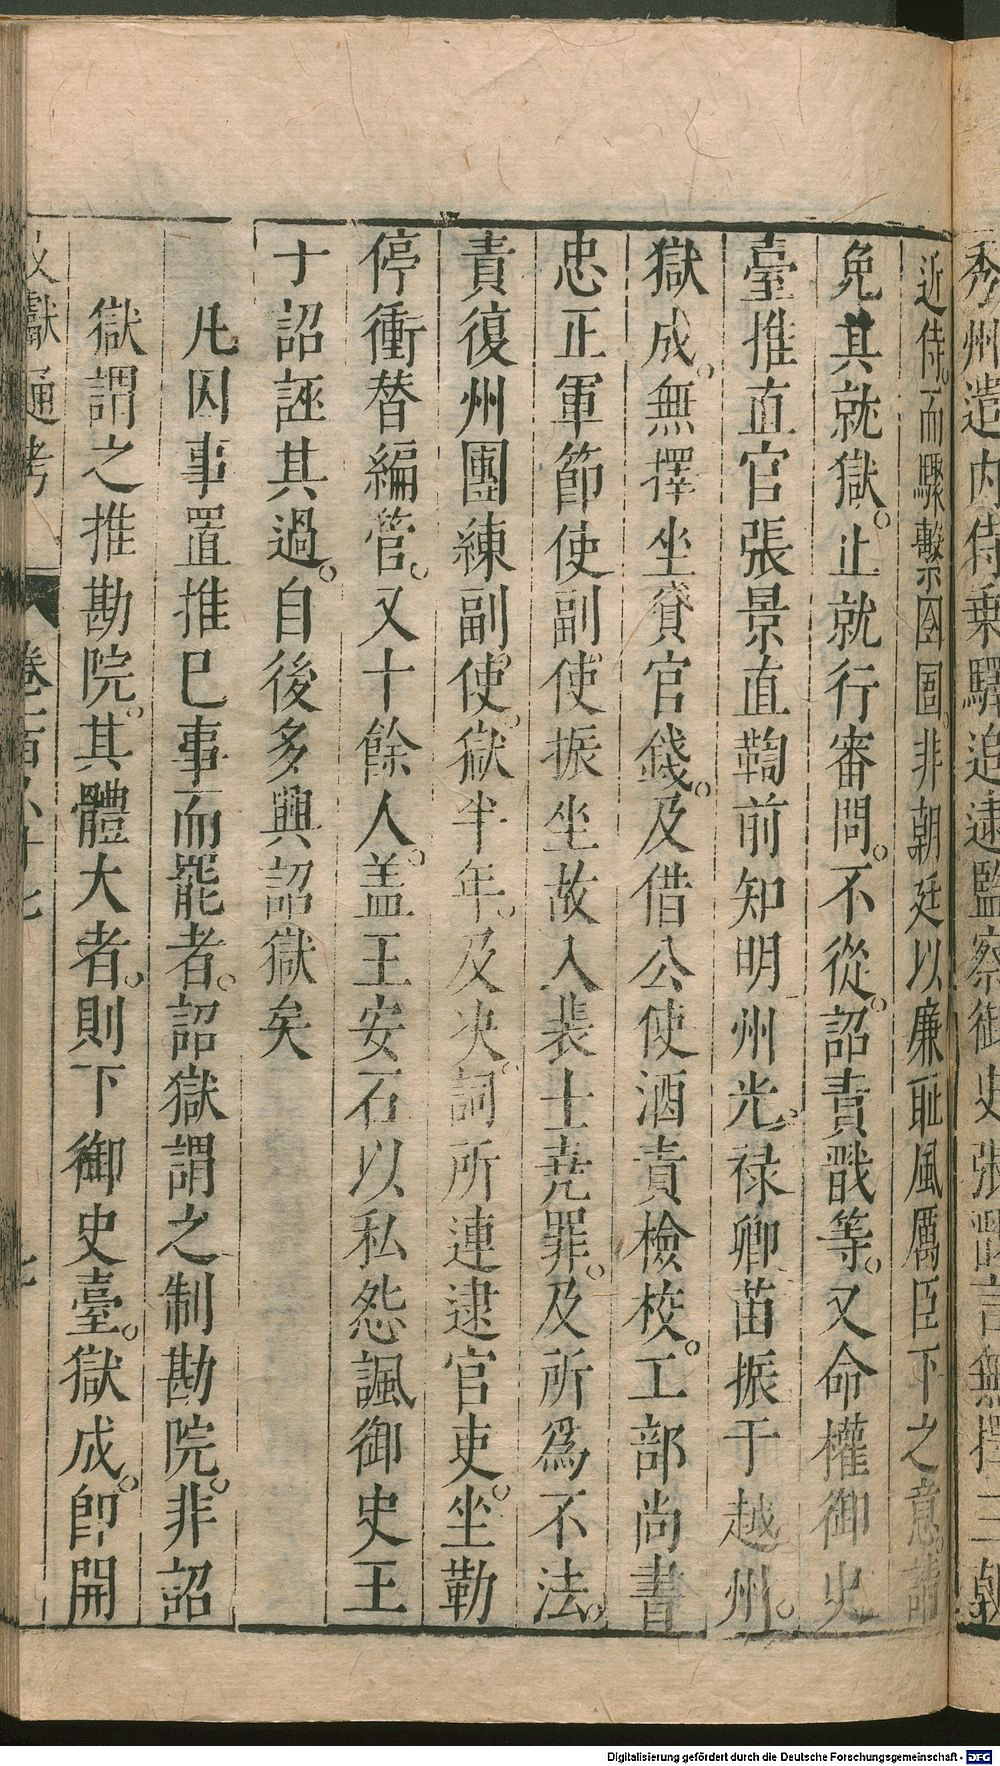 秀州遣内侍乗驛追逮監察御史張戩言無擇三朝
近侍。而驟繫囹圄。非朝廷以廉耻風厲臣下之意。請
免其就獄。止就行審問。不從。詔責戩等。又命權御史
臺推直官張景直鞫前知明州光禄卿苗振于越州。
獄成。無擇坐貸官錢。及借公使酒責檢校。工部尚書
忠正軍節使副使振坐故入裴士堯罪。及所爲不法。
責復州團練副使。獄半年。及决。詞所連逮官吏。坐勒
停衝替編管。又十餘人。盖王安石以私怨諷御史王
于詔誣其過。自後多興詔獄矣
凡囚事置推巳事而罷者。詔獄謂之制勘院。非詔
獄謂之推勘院。其體大者。則下御史臺。獄成。卽開
文獻通考 卷一百六十七 七
Digitalisierung gefördert durch die Deutsche Forschungsgemeinschaft - DFG